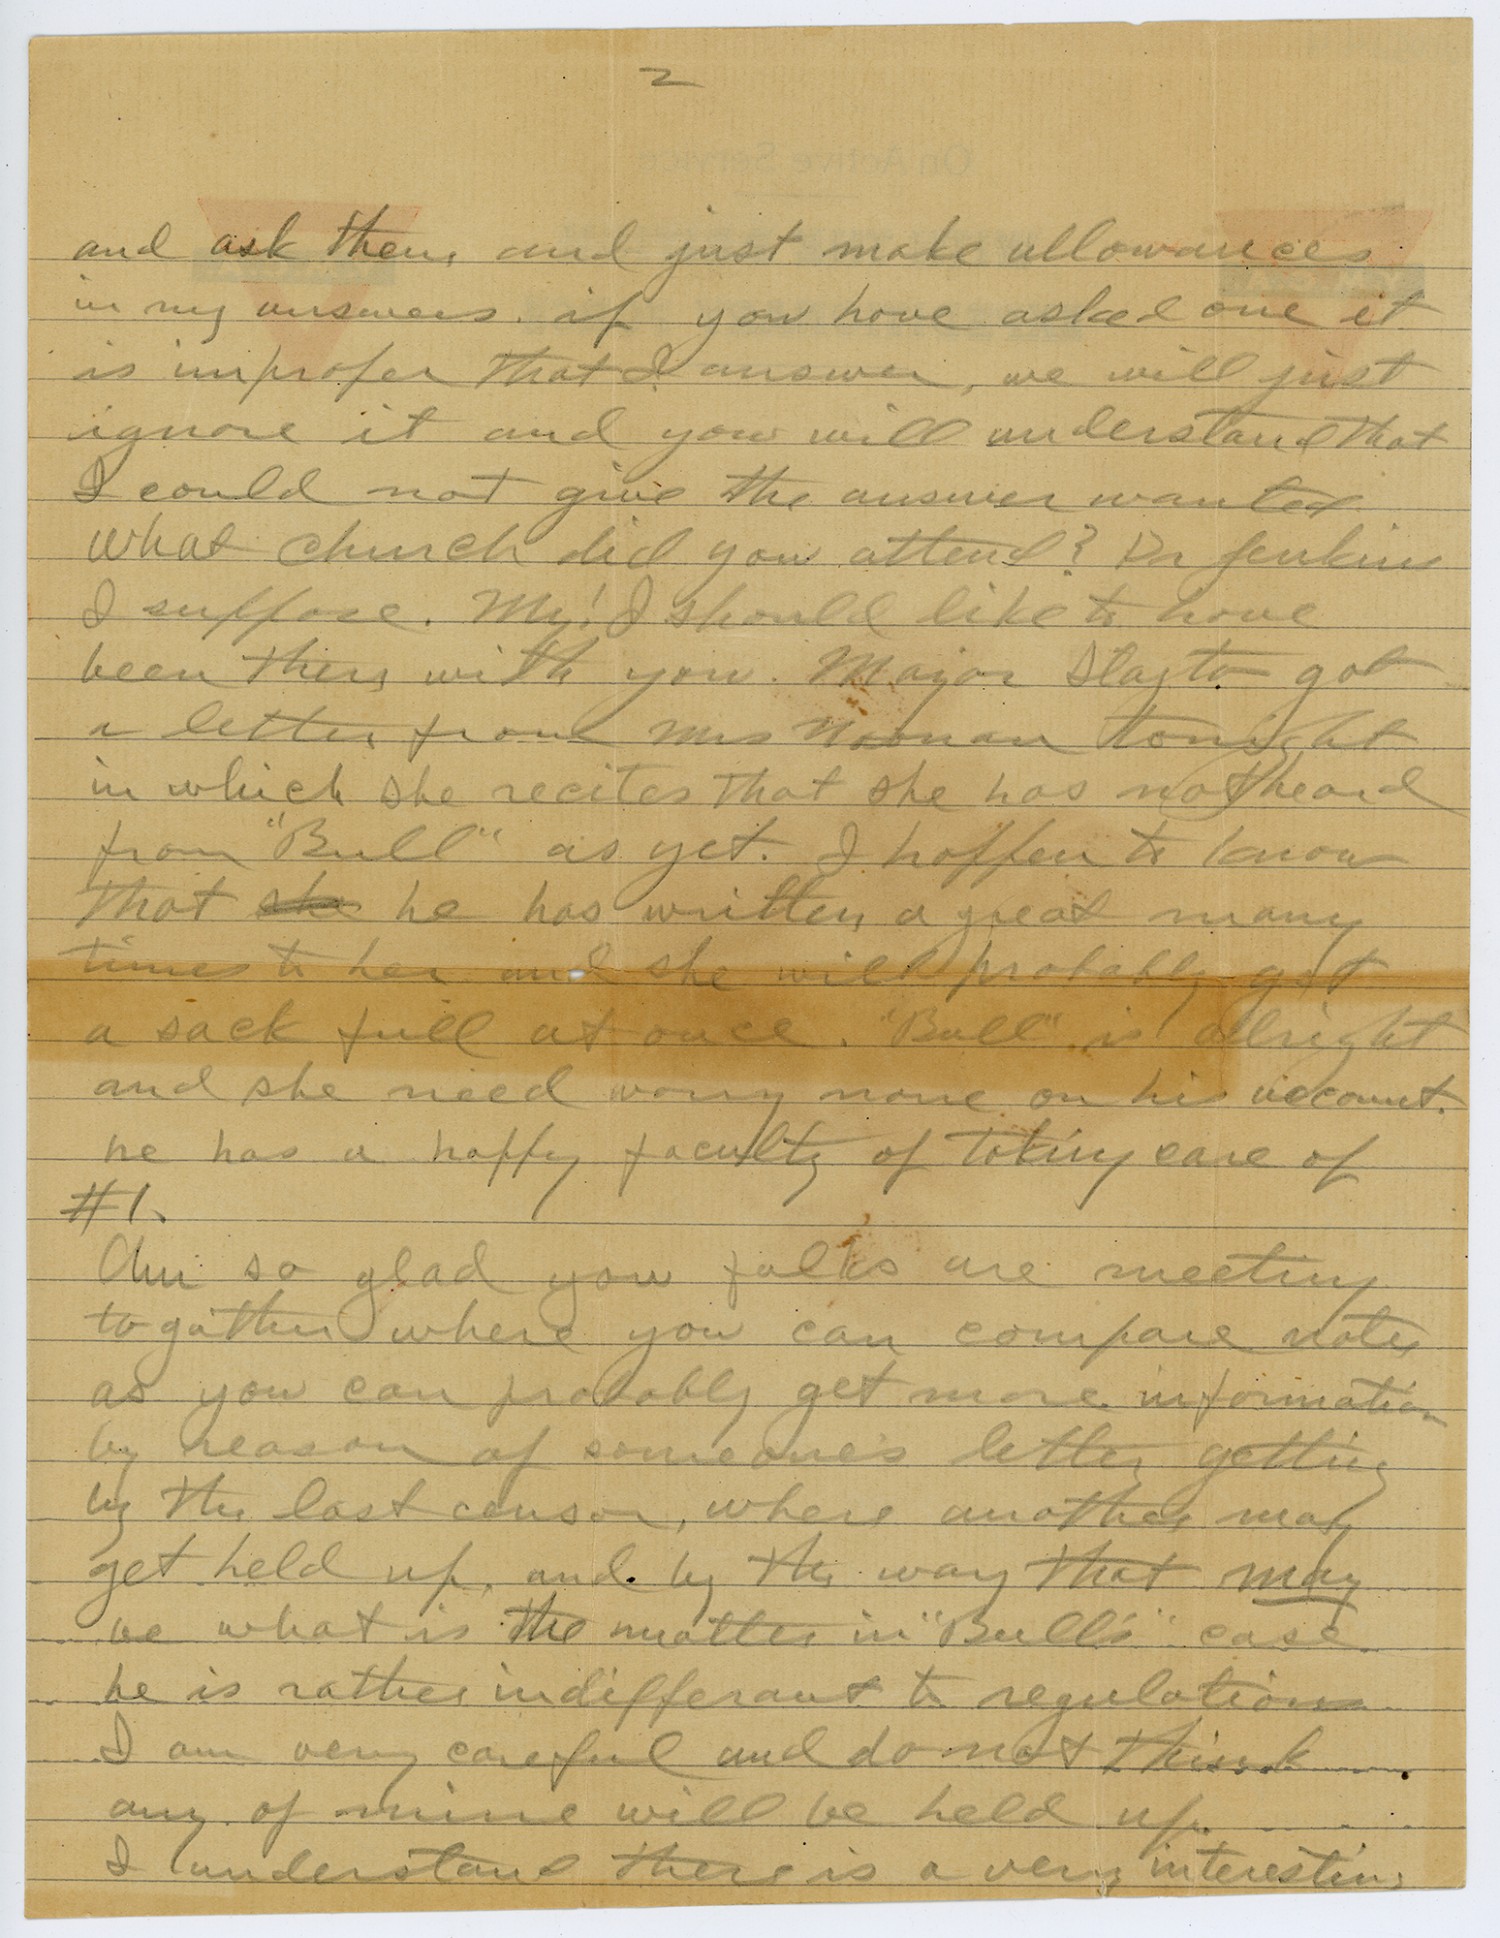 2
On Active Service
and ask them, and just make allowances
in my answers. if you have asked one it
is improper that I answer, we will just
ignore it and you will understand that
I could not give the answer wanted
What church did you attend? Dr Jenkins
I suppose. My! I should like to have
been there with you. Major Slayton got
a letter from Mrs Noonan tonight
in which she recites that she has not heard
from "Bull" as yet. I happen to know
that she he has written a great many
times to her and she will probably get
a sack full at once. "Bull" is alright
and she need worry none on his account.
he has a happy faculty of taking care of
#1.
Am so glad you folks are meeting
together where you can compare notes
as you can probably get more information
by reason of someone's letter getting
by the last censor, where another may
get held up, and by the way that may
be what is the matter in "Bull's" case
he is rather indifferant to regulations
I am very careful and do not think
any of mine will be held up.
I understand there is a very interesting